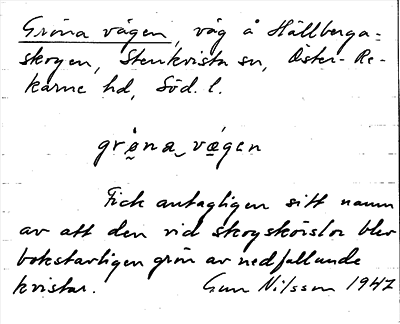 Gröna vägen, väg å Hällberga=
skogen, Stenkvista sn, Öster-Re-
karne hd, Söd. l.
grö̀na vägen
Fick antagligen sitt namn
av att den vid skogskörslor blev
bokstavligen grön av nedfallande
kvistar. Gun Nilsson 1947